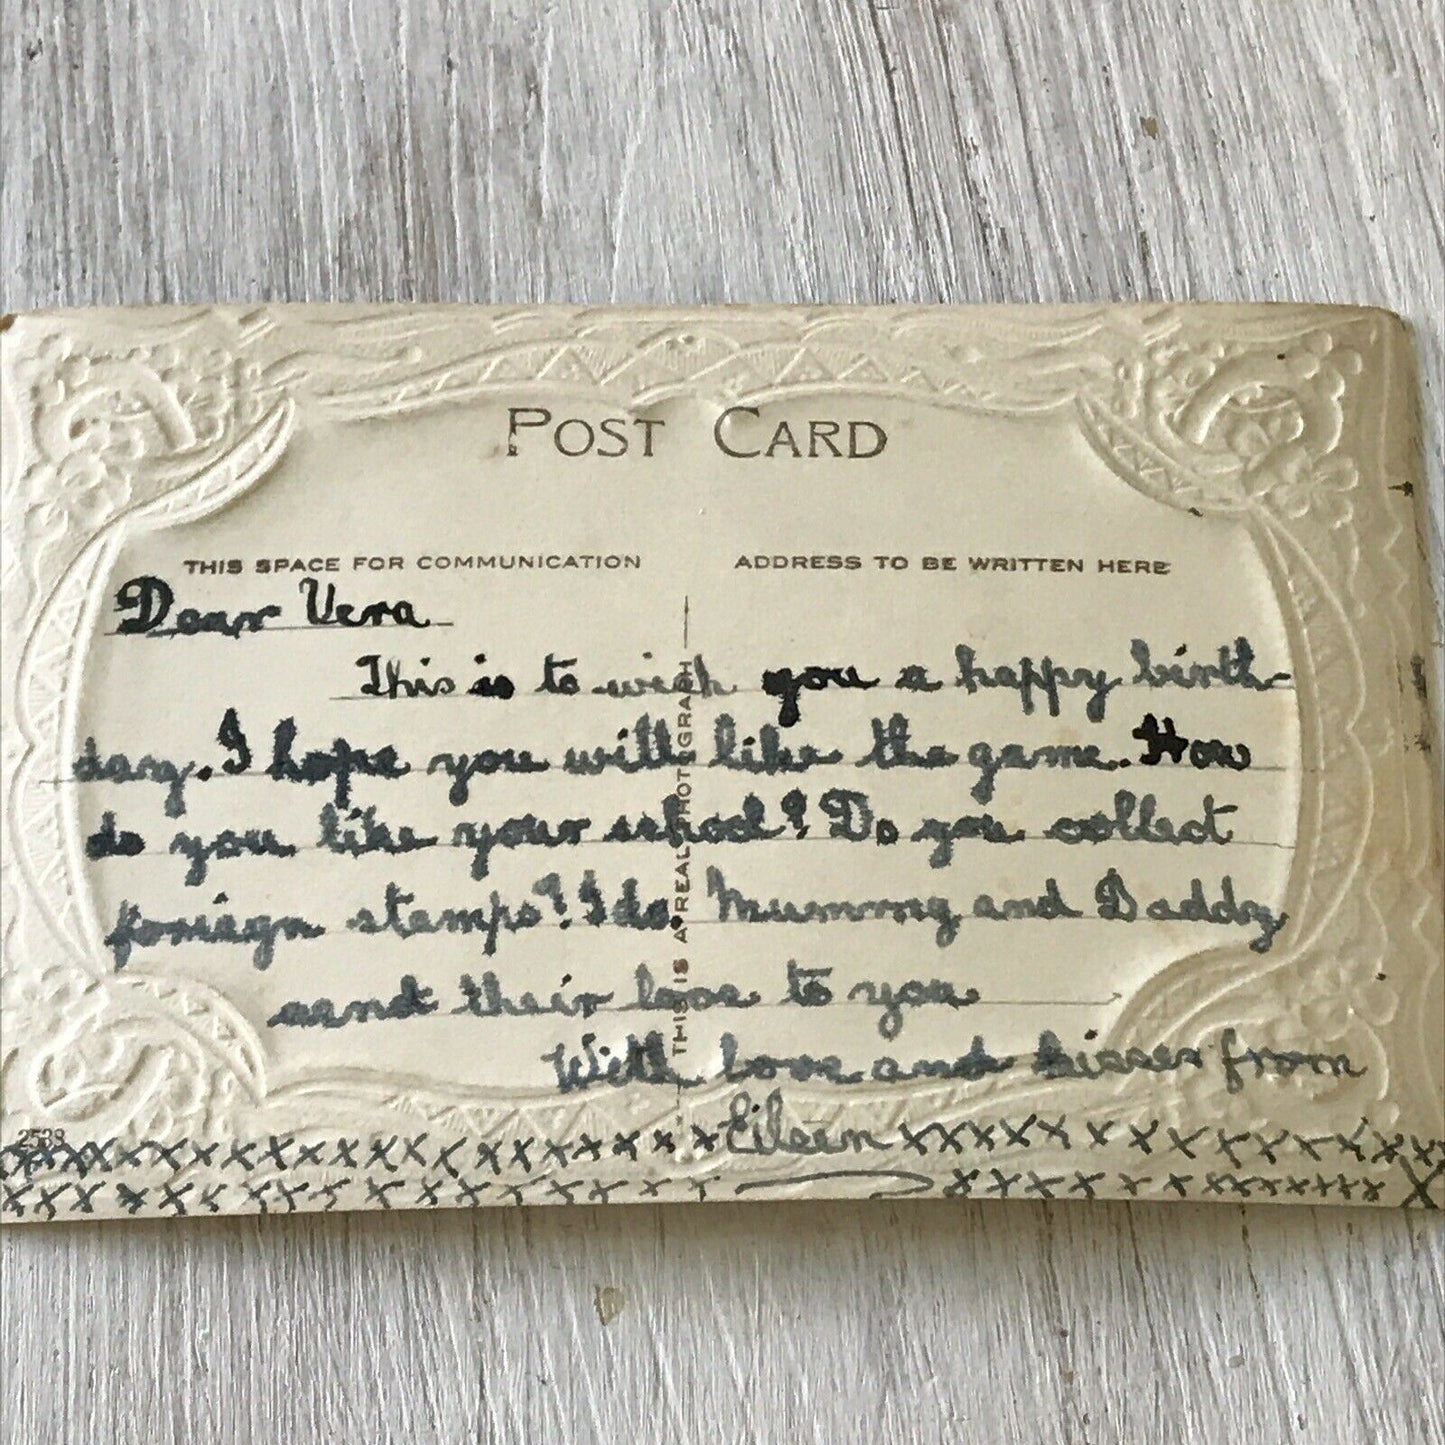 POST CARD
THIS SPACE FOR COMMUNICATION
ADDRESS TO BE WRITTEN HERE
Dear Vera
This is to wish you a happy birth-
day. I hope you will like the game. How
do you like your school? Do you collect
foreign stamps? I do. Mummy and Daddy
send their love to you
With love and kisses from
xxxxxxxxxxxxxxxxx Eileen xxxxxxxxxxxxxx
xxxxxxxxxxxxxxxx xxxxxxxxxxxxxx
THIS IS A REAL PHOTOGRAPH
2539